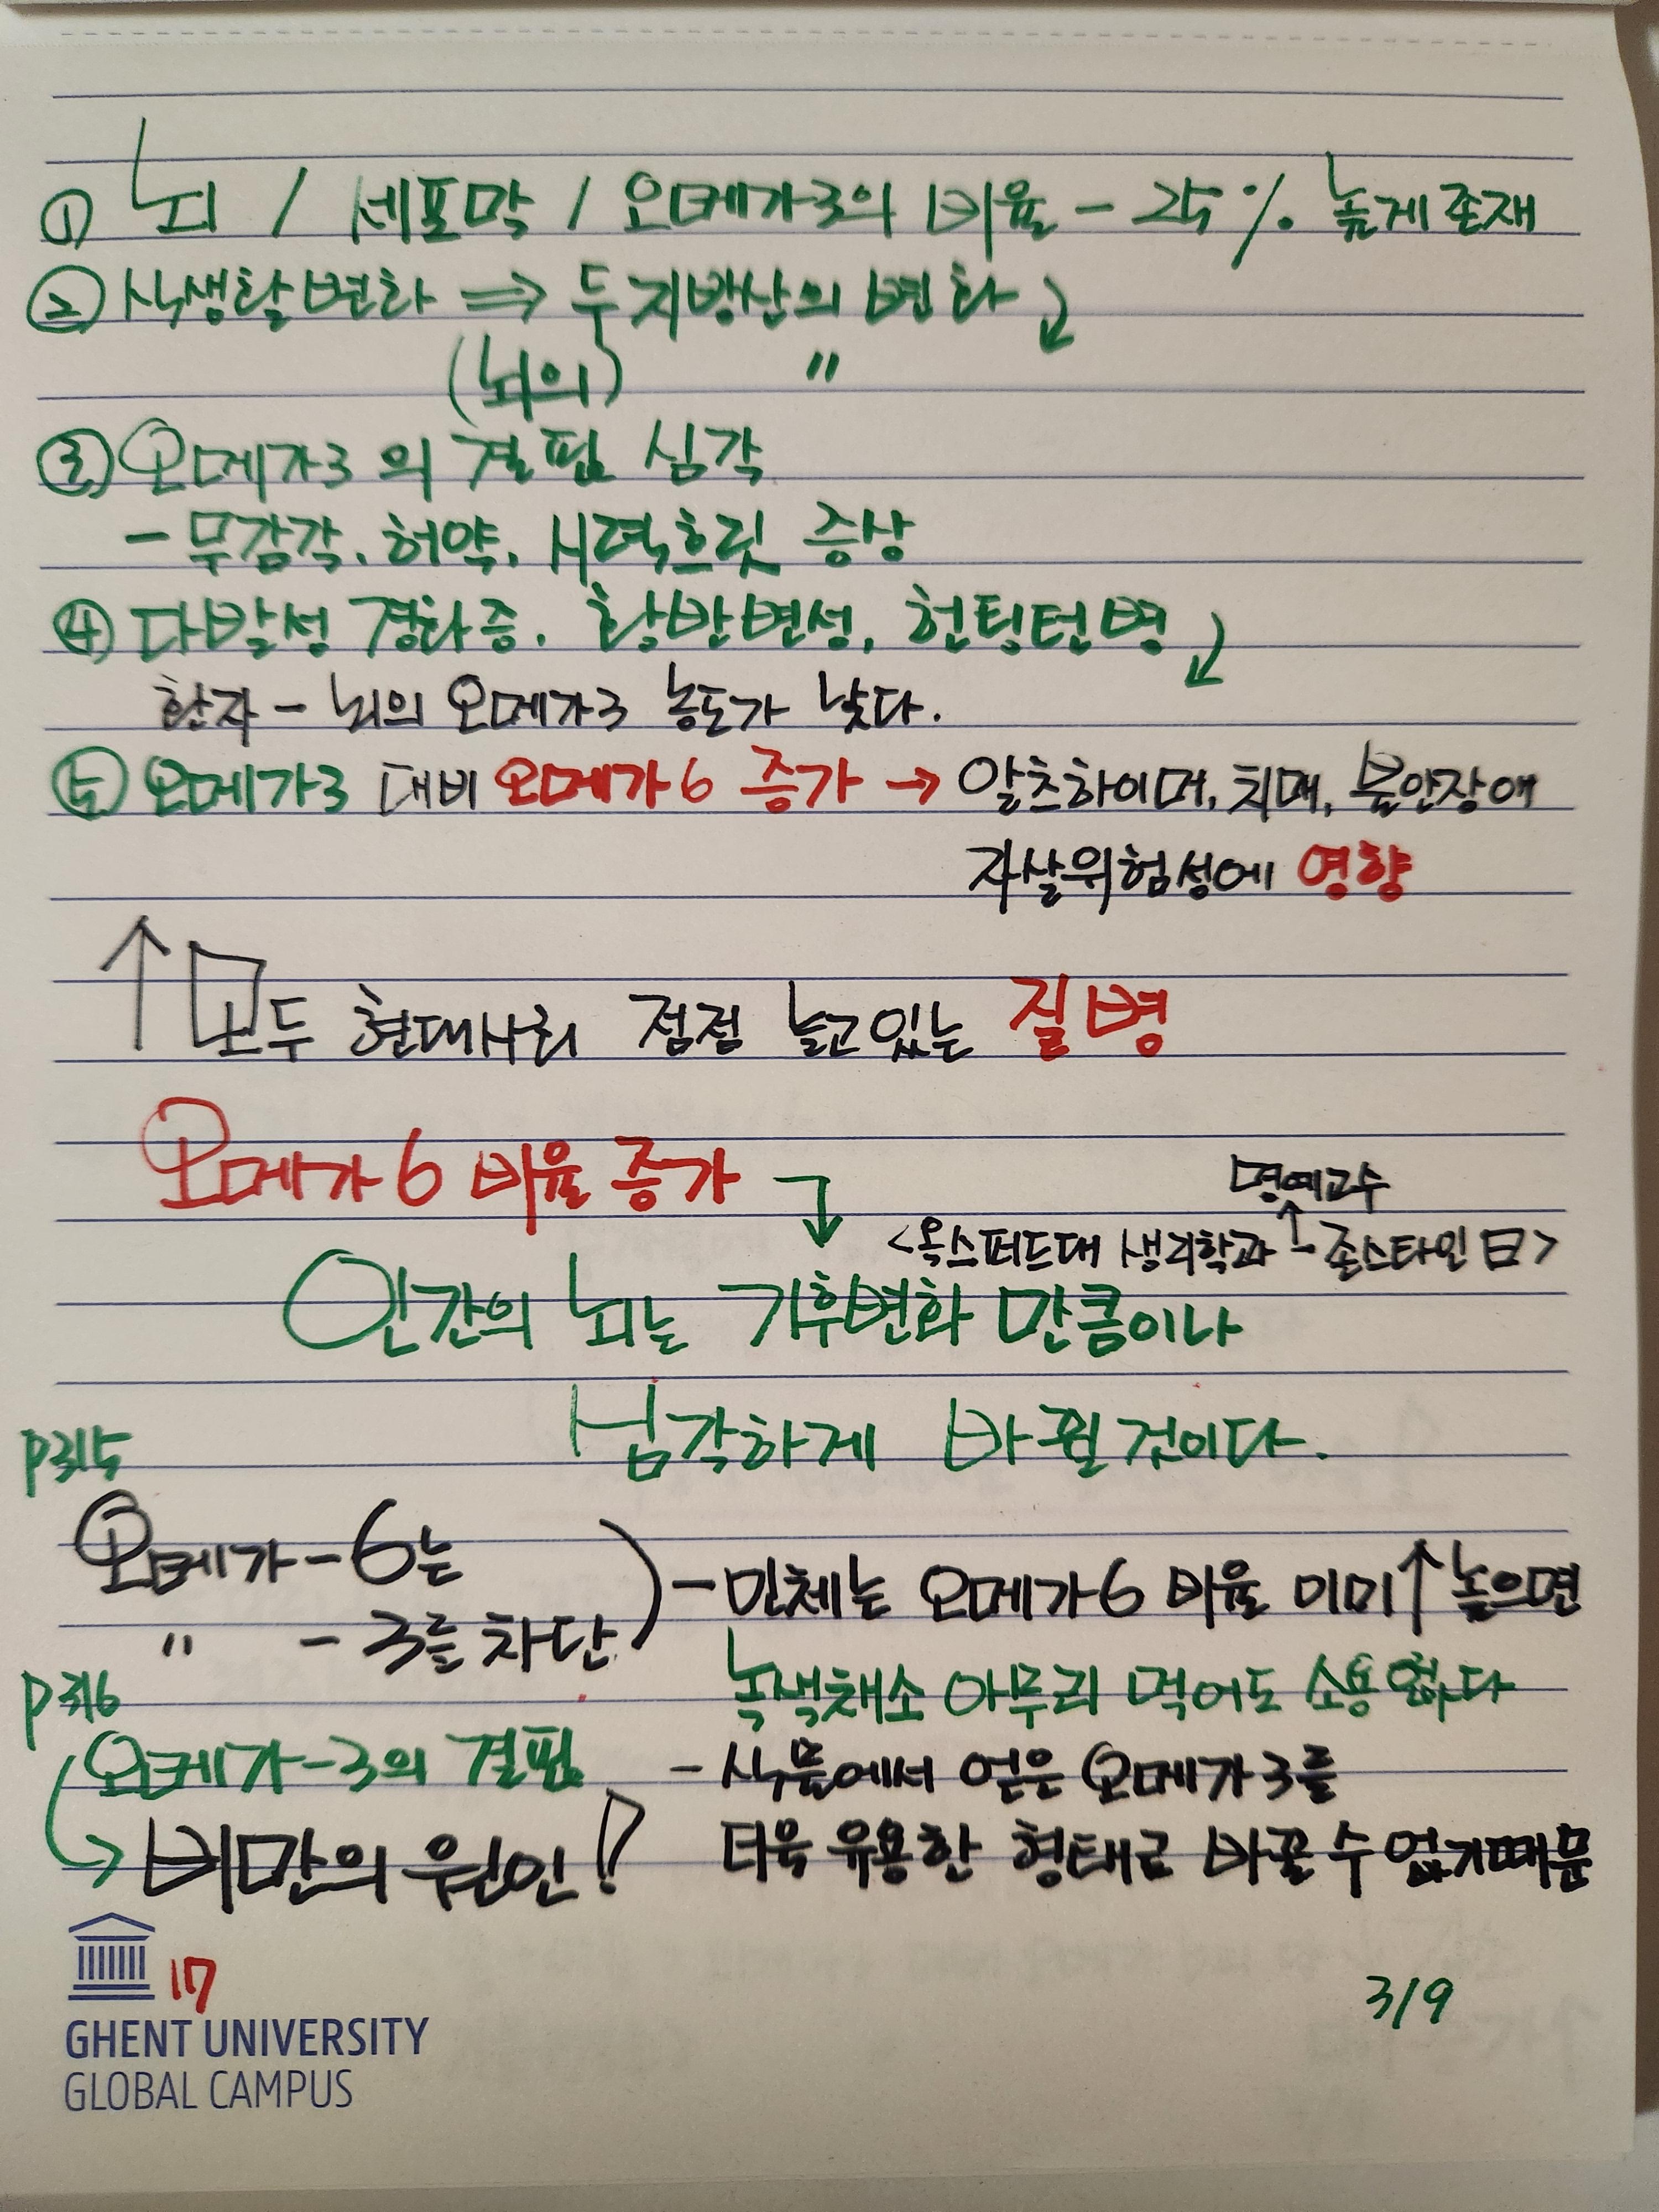 ① 뇌 / 세포막 / 오메가3의 비율 - 25% 높게 존재
② 식생활변화 ⇒ 두 지방산의 변화
(뇌의) "
③ 오메가3의 결핍 심각
- 무감각, 허약, 시력흐릿 증상
④ 다발성 경화증, 황반변성, 헌팅턴병
환자 - 뇌의 오메가3 농도가 낮다.
⑤ 오메가3 대비 오메가6 증가 → 알츠하이머, 치매, 불안장애
자살위험성에 영향
↑ 모두 현대사회 점점 늘고있는 질병
오메가6 비율 증가
명예교수
<옥스퍼드대 생리학과 - 존스타인 曰>
인간의 뇌는 기후변화 만큼이나
심각하게 바뀔것이다.
p315
오메가-6는
" - 3를 차단
- 인체는 오메가6 비율 이미↑높으면
녹색채소 아무리 먹어도 소용 없다
- 식물에서 얻은 오메가3를
더욱 유용한 형태로 바꿀 수 없기때문
p316
오메가-3의 결핍
→ 비만의 원인!
17
3/9
GHENT UNIVERSITY
GLOBAL CAMPUS